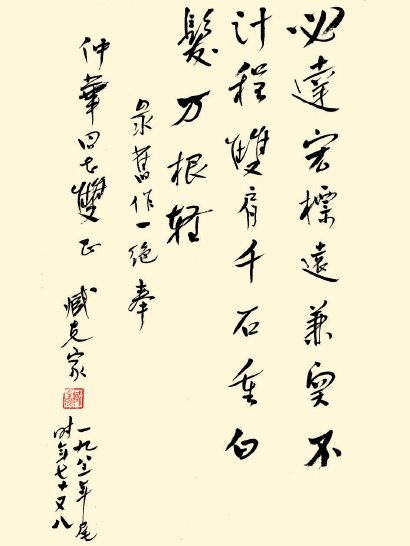 必達宏標遠兼不
計程雙肩千石重白
髮万根轻
录舊作一绝奉
仲華同志雙正
臧克家
一九八三年尾
时年七十又八